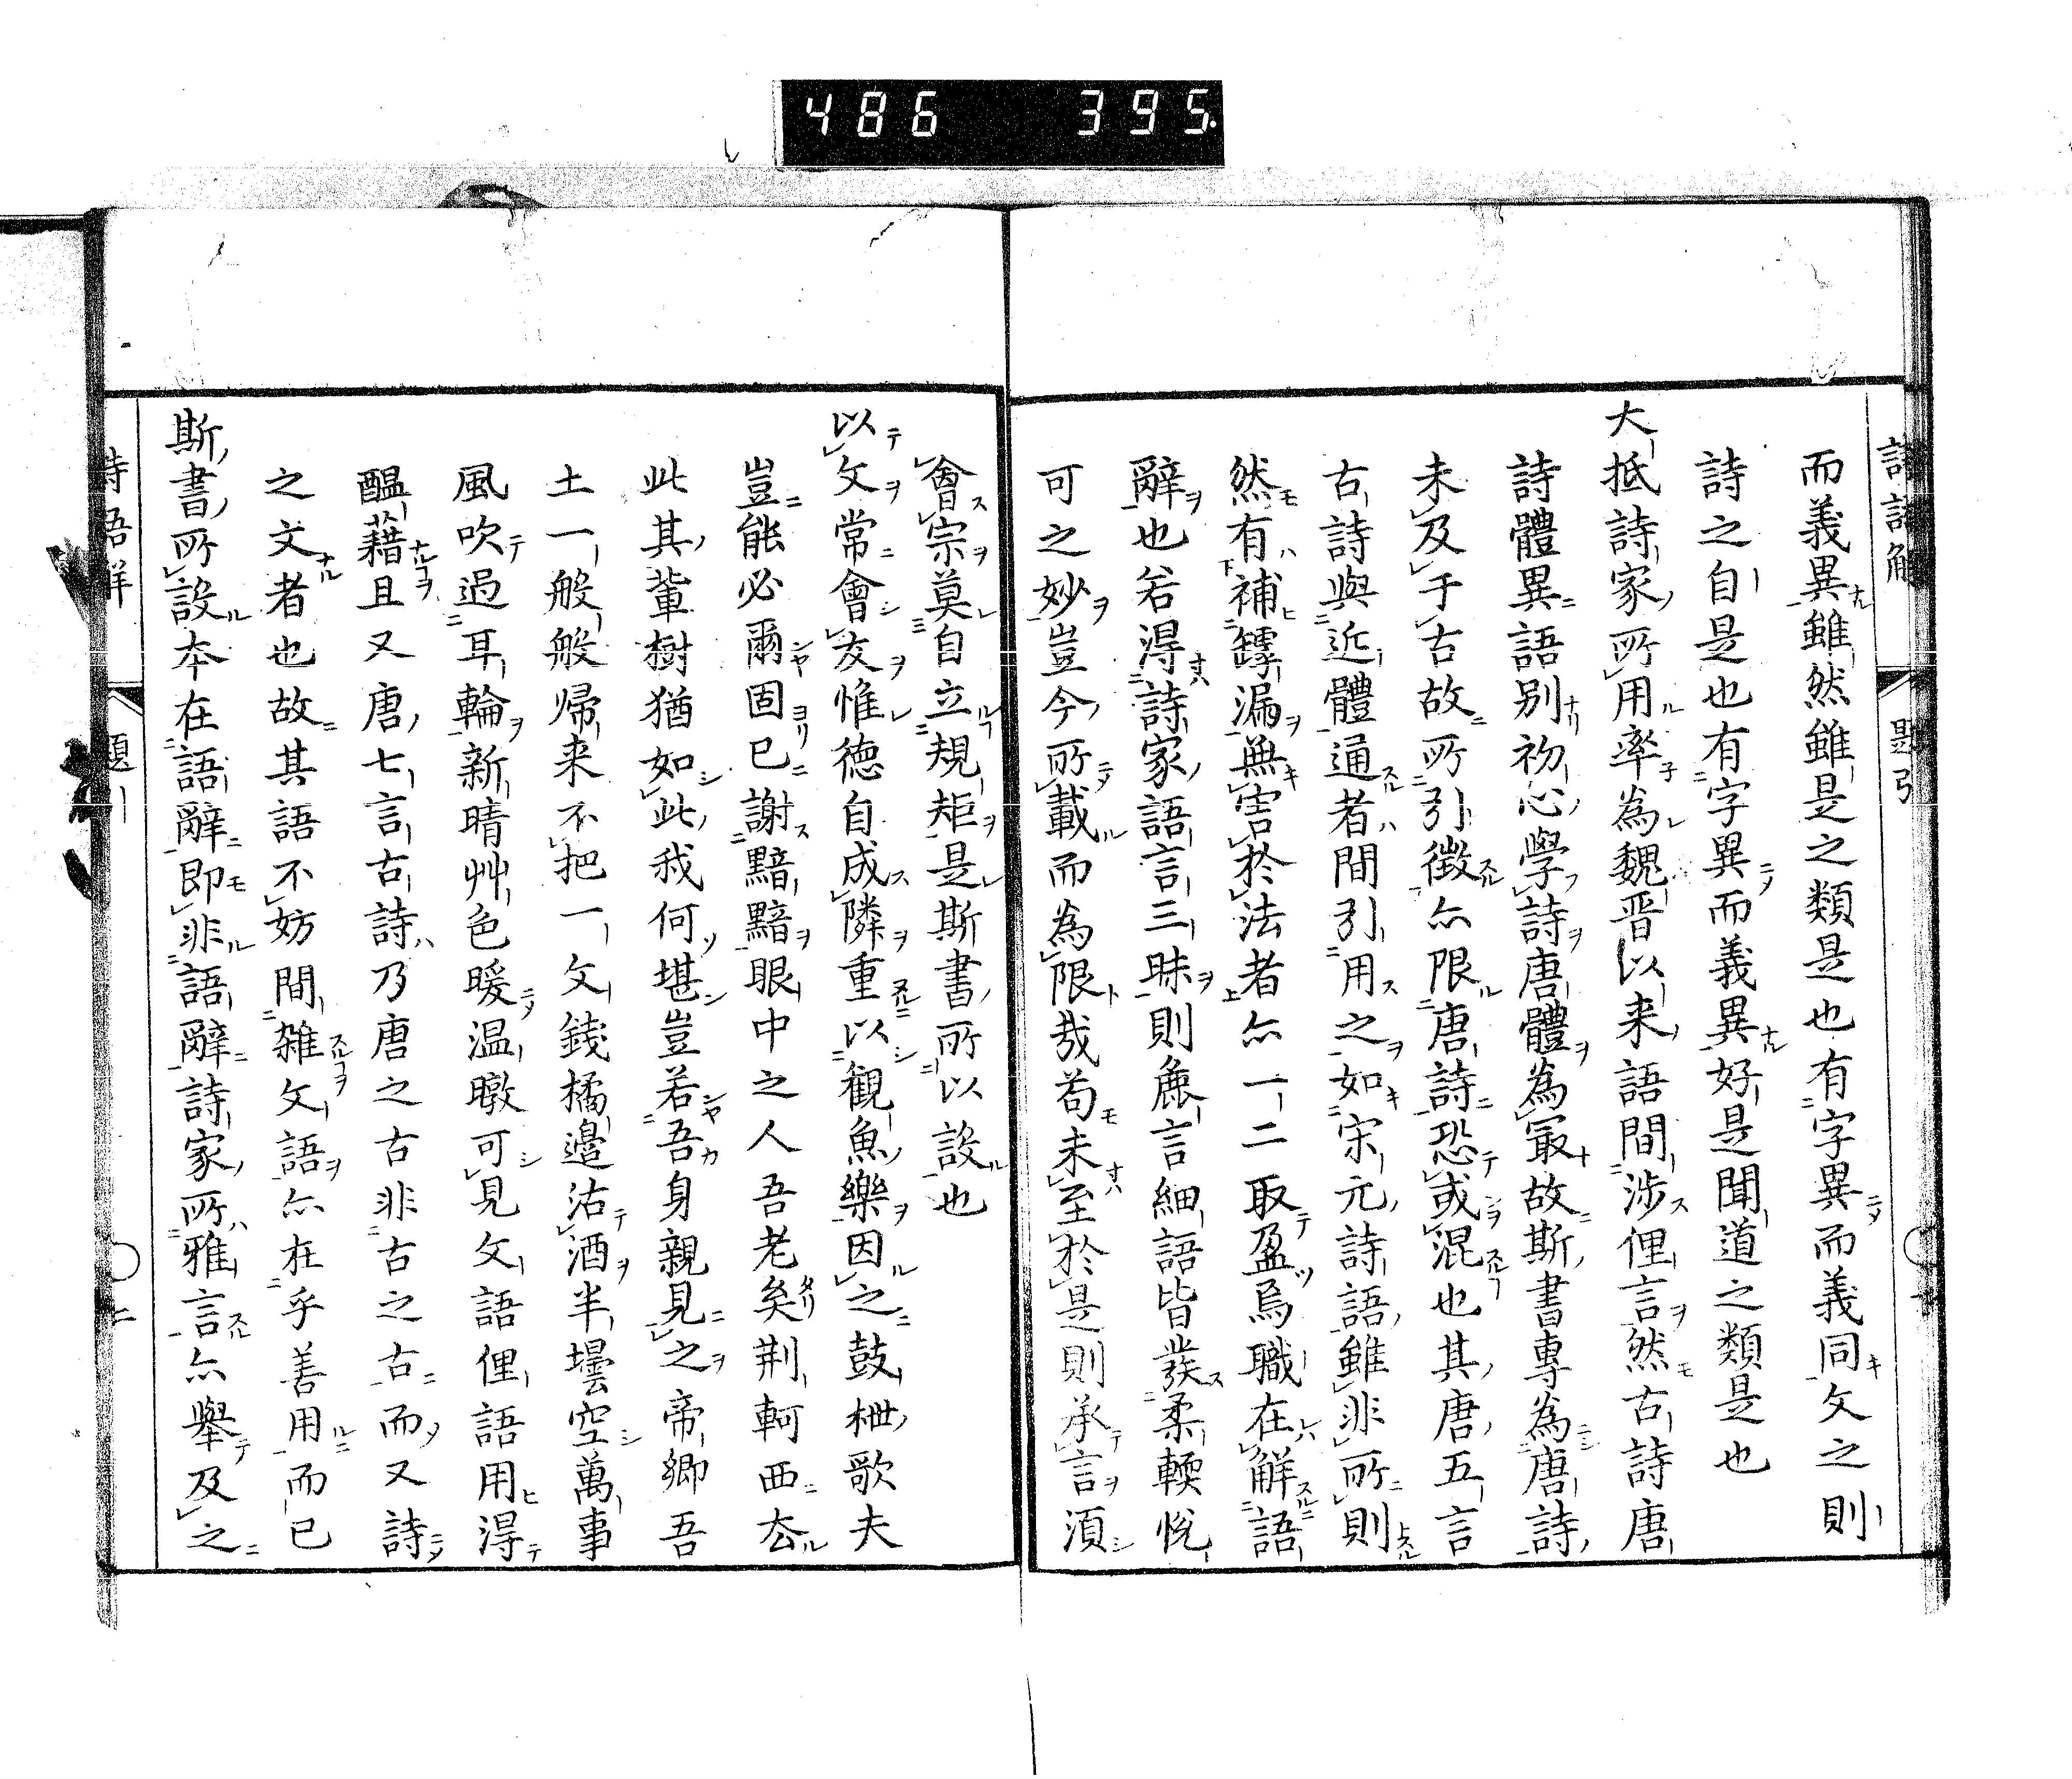 486 395
詩語解 題引
而義異雖然雖是之類是也有字異而義同文之則
詩之自是也有字異而義異好是聞道之類是也
大抵詩家所用率為魏晋以来語間涉俚言然古詩唐
詩體異語別初心學詩唐體為冣故斯書專為唐詩
未及于古故所引徵亦限唐詩恐或混也其唐五言
古詩與近體通者間引用之如宋元詩語雖非所則
然有補罅漏無害於法者亦一二取盈焉職在解語
辭也若得詩家語言三昧則麁言細語皆發柔輭悅
可之妙豈今所載而為限哉苟未至於是則承言須
會宗莫自立規矩是斯書所以設也
以文常會友惟德自成隣重以觀魚樂因之鼓枻歌夫
豈能必爾固已謝黯黯眼中之人吾老矣荆軻西去
此其輩樹猶如此我何堪豈若吾身親見之帝鄉吾
土一般般帰来不把一文錢橘邉沽酒半壜空萬事
風吹過耳輪新晴艸色暖温暾可見文語俚語用得
醞藉且又唐七言古詩乃唐之古非古之古而又詩
之文者也故其語不妨間雜文語亦在乎善用而已
斯書所設本在語辭即非語辭詩家所雅言亦舉及之
詩語解 題引